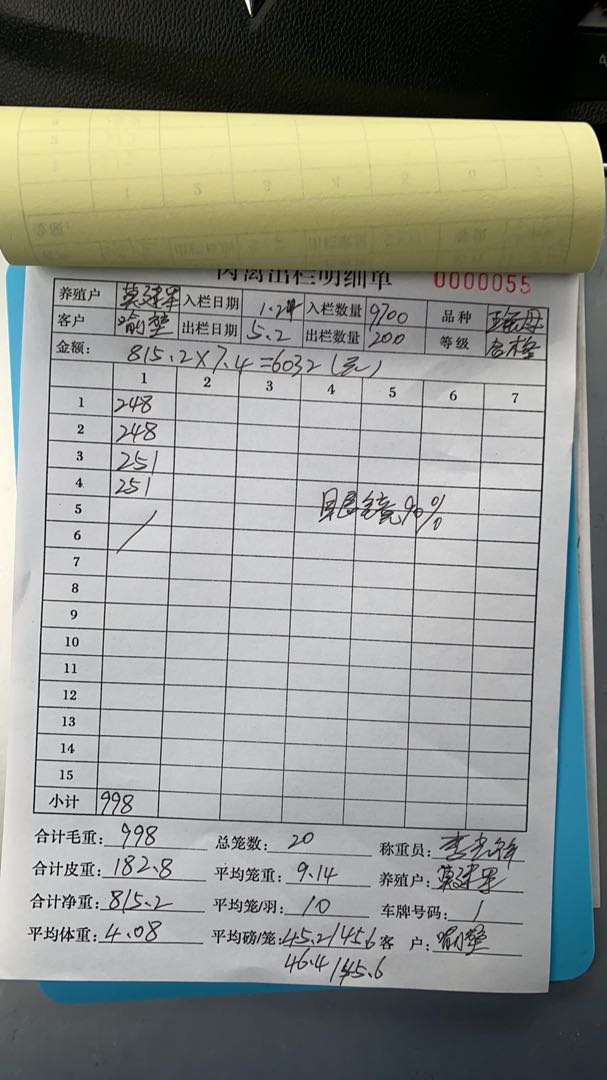 肉禽出栏明细单 0000055
养殖户 莫建军 入栏日期 1.24 入栏数量 9700 品种
客户 喻梦 出栏日期 5.2 出栏数量 200 等级 合格
金额: 815.2×7.4=6032(元)
1 2 3 4 5 6 7
1 248
2 248
3 251
4 251
5 90%
6 /
7
8
9
10
11
12
13
14
15
小计 998
合计毛重: 998 总笼数: 20 称重员:
合计皮重: 182.8 平均笼重: 9.14 养殖户: 莫建军
合计净重: 815.2 平均笼/羽: 10 车牌号码: /
平均体重: 4.08 平均磅/笼: 45.2/45.6 客 户: 喻梦
46.4/45.6